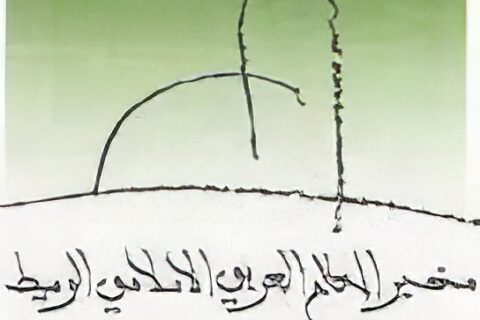 مخبر العالم العربي الاسلامي الوسيط